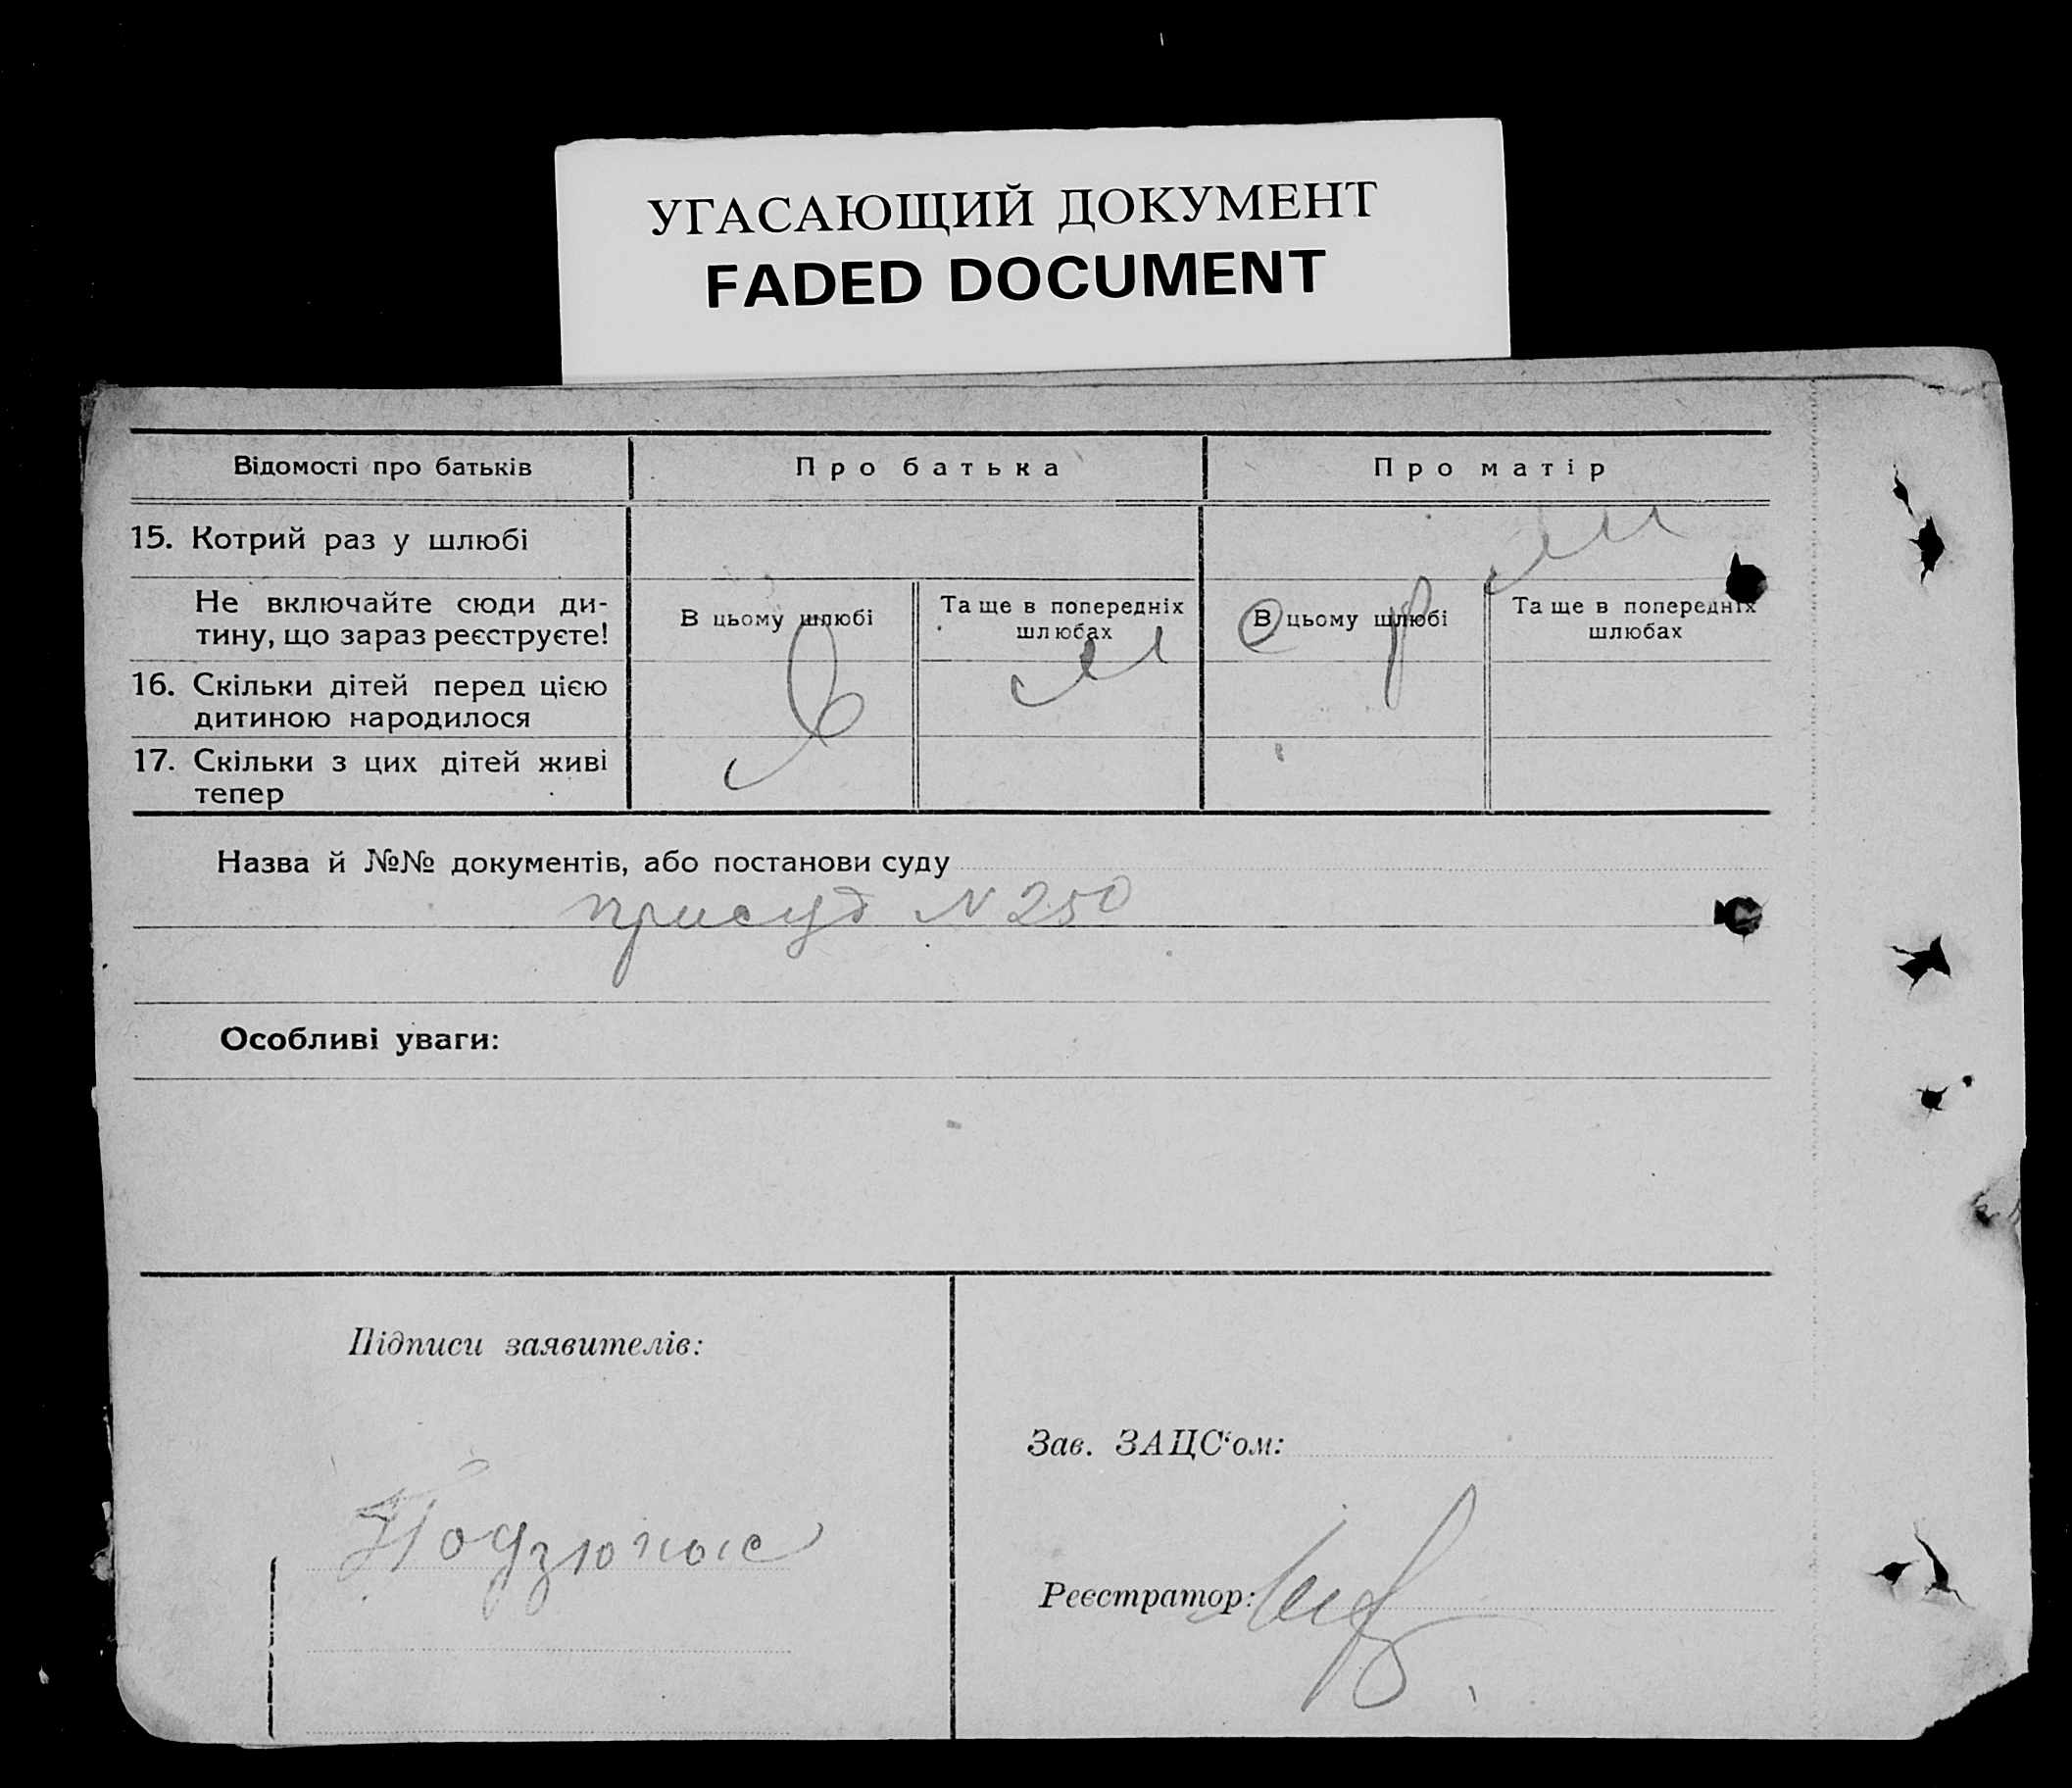 УГАСАЮЩИЙ ДОКУМЕНТ
FADED DOCUMENT
Відомості про батьків
Про батька
Про матір
15. Котрий раз у шлюбі
Не включайте сюди ди-
тину, що зараз реєструєте!
В цьому шлюбі
Та ще в попередніх
шлюбах
В цьому шлюбі
Та ще в попередніх
шлюбах
16. Скільки дітей перед цією
дитиною народилося
17. Скільки з цих дітей живі
тепер
Назва й №№ документів, або постанови суду
присуд N 250
Особливі уваги:
Підписи заявителів:
Зав. ЗАЦС‘ом:
Реєстратор: